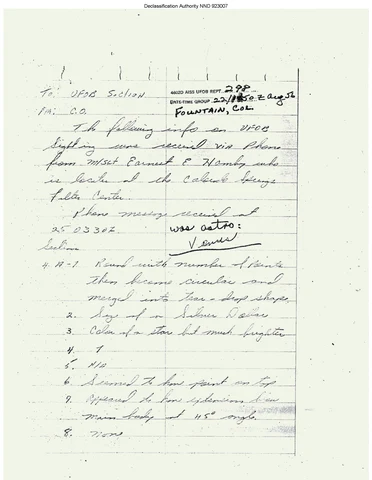 Declassification Authority NND 923007
To: UFOB Section
4602D AISS UFOB REPT. 298
DATE-TIME GROUP 22/1150Z Aug 56
FOUNTAIN, COL
Fm: C.O.
The following info on UFOB
Sighting was received VIA Phone
from M/Sgt Earnest E Hamby who
is located at the Colorado Springs
Filter Center.
Phone message received at
25 0330Z
was astro:
Venus
Section
4. A-1. Round with number of points
then became circular and
merged into tear-drop shape.
2. Size of a Silver Dollar
3. Color of a star but much brighter
4. 1
5. N/A
6. Seemed to have point on top
7. Appeared to have extensions from
main body at 45° angle.
8. None